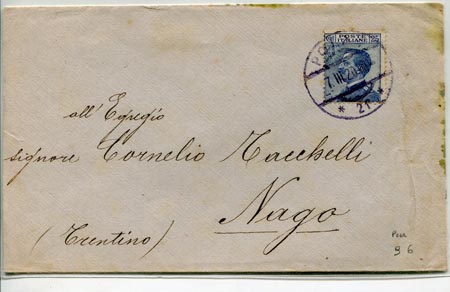 POSTE ITALIANE
7.III.20
* 2f *
all'Egregio
signore Cornelio Tacchelli
Nago
(Trentino)
96